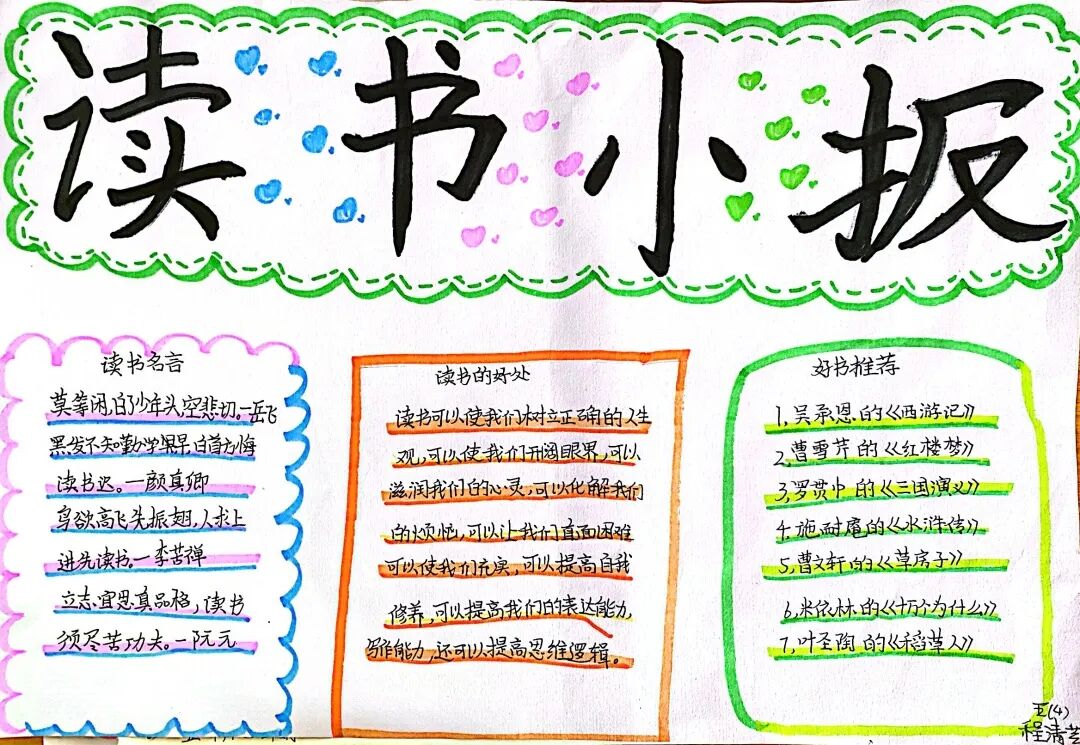 读书小报
读书名言
莫等闲,白了少年头,空悲切。—岳飞
黑发不知勤学早,白首方悔
读书迟。—颜真卿
鸟欲高飞先振翅,人求上
进先读书。—李苦禅
立志宜思真品格,读书
须尽苦功夫。—阮元
读书的好处
读书可以使我们树立正确的人生
观,可以使我们开阔眼界,可以
滋润我们的心灵,可以化解我们
的烦恼,可以让我们直面困难
可以使我们充实,可以提高自我
修养,可以提高我们的表达能力,
写作能力,还可以提高思维逻辑。
好书推荐
1,吴承恩的《西游记》
2,曹雪芹的《红楼梦》
3,罗贯中的《三国演义》
4.施耐庵的《水浒传》
5,曹文轩的《草房子》
6,米依林的《十万个为什么》
7,叶圣陶的《稻草人》
五(4)
程清芸